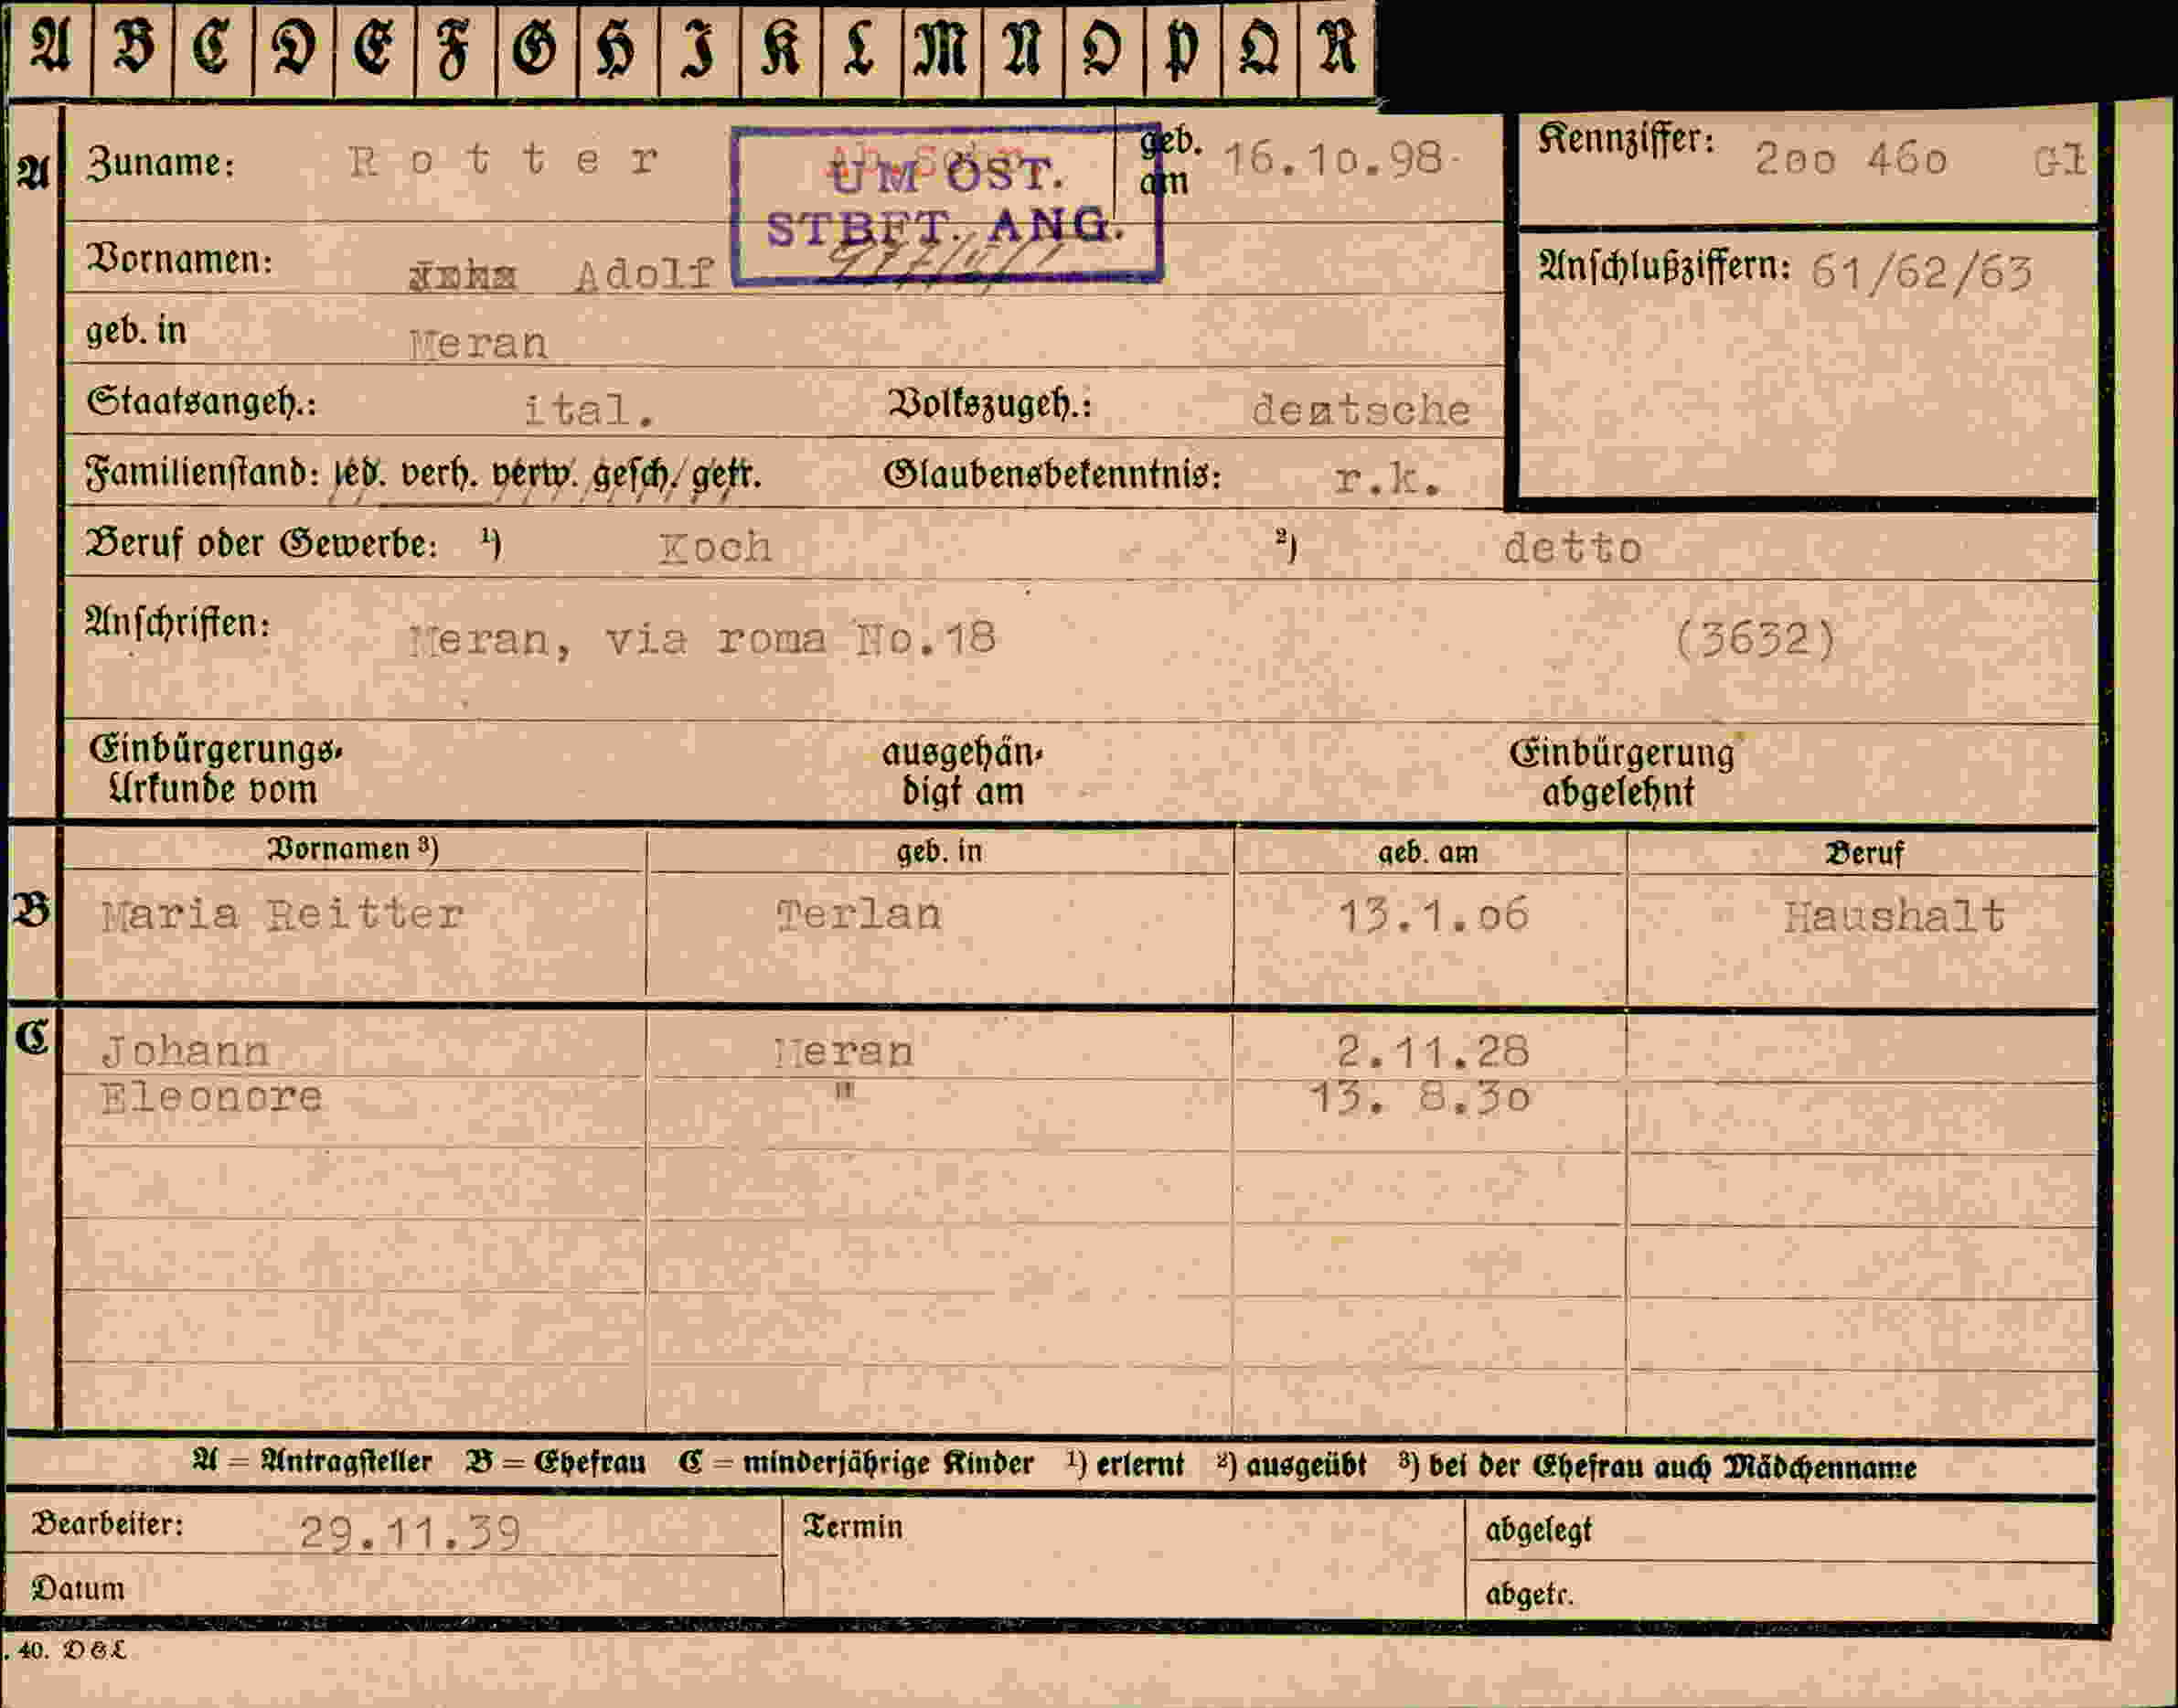 A B C D E F G H I K L M N O P Q R
A Zuname: Rotter geb. am 16.10.98. Kennziffer: 2oo 46o Gl
UM ÖST.
STBFT. ANG.
Vornamen: Adolf Anschlußziffern: 61/62/63
geb. in Meran
Staatsangeh.: ital. Volkszugeh.: deutsche
Familienstand: led. verh. verw. gesch. getr. Glaubensbekenntnis: r.k.
Beruf oder Gewerbe: ¹) Koch ²) detto
Anschriften: Meran, via roma No.18 (3632)
Einbürgerungs- ausgehän- Einbürgerung
Urkunde vom digt am abgelehnt
Vornamen ³) geb. in geb. am Beruf
B Maria Reitter Terlan 13.1.o6 Haushalt
C Johann Meran 2.11.28
Eleonore " 13. 8.3o
A = Antragsteller B = Ehefrau C = minderjährige Kinder ¹) erlernt ²) ausgeübt ³) bei der Ehefrau auch Mädchenname
Bearbeiter: 29.11.39 Termin abgelegt
Datum abgetr.
. 40. DGL